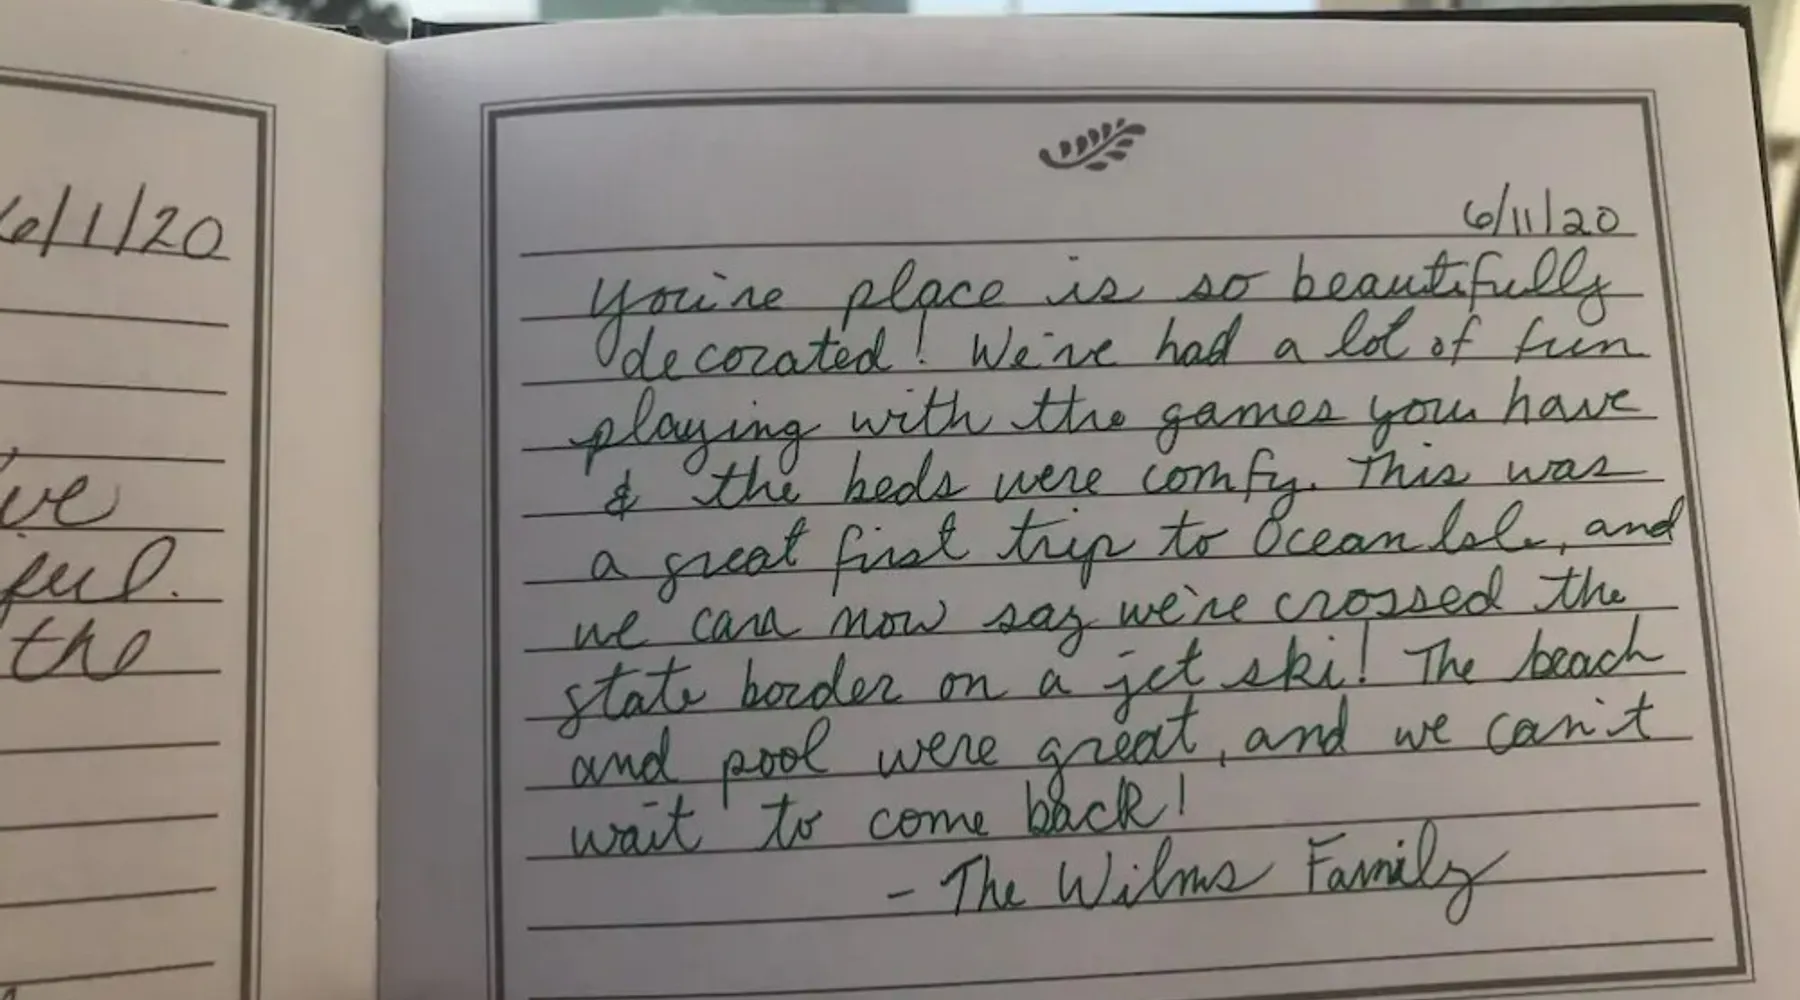 6/1/20
ve
ful.
the
6/11/20
You're place is so beautifully
decorated! We've had a lot of fun
playing with the games you have
& the beds were comfy. This was
a great first trip to Ocean Isle, and
we can now say we're crossed the
state border on a jet ski! The beach
and pool were great, and we can't
wait to come back!
- The Wilms Family